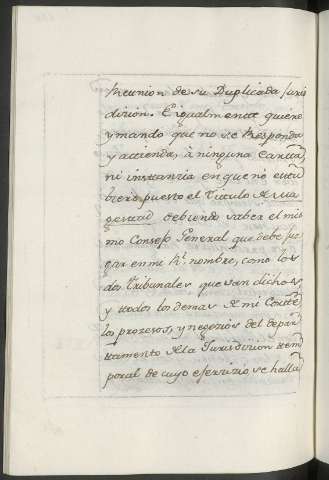 Reunion de su Duplicada Juris
dicion. E igualmente quiere
y mando que no se Responda
y attienda, à ninguna Cartta,
ni insttanzia en que no estu
biere puesto el Tittulo de Ma
gestad debiendo saber el mis
mo Consejo General que debe juz
gar en mi Rl. nombre, como los
dos Tribunales que van dichos,
y ttodos los demas de mi Cortte
los prozesos, y negozios del depar
ttamento de la Jurisdizion ttem
poral de cuyo eserzizio se halla